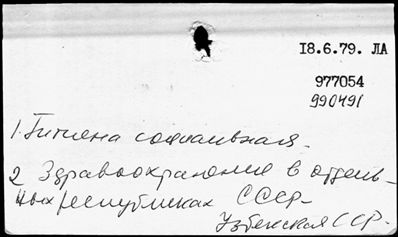 18.6.79. ЛА
977054
990491
1. Гигиена социальная.
2 Здравоохранение в отдель-
ных республиках СССР.-
Узбекская ССР.